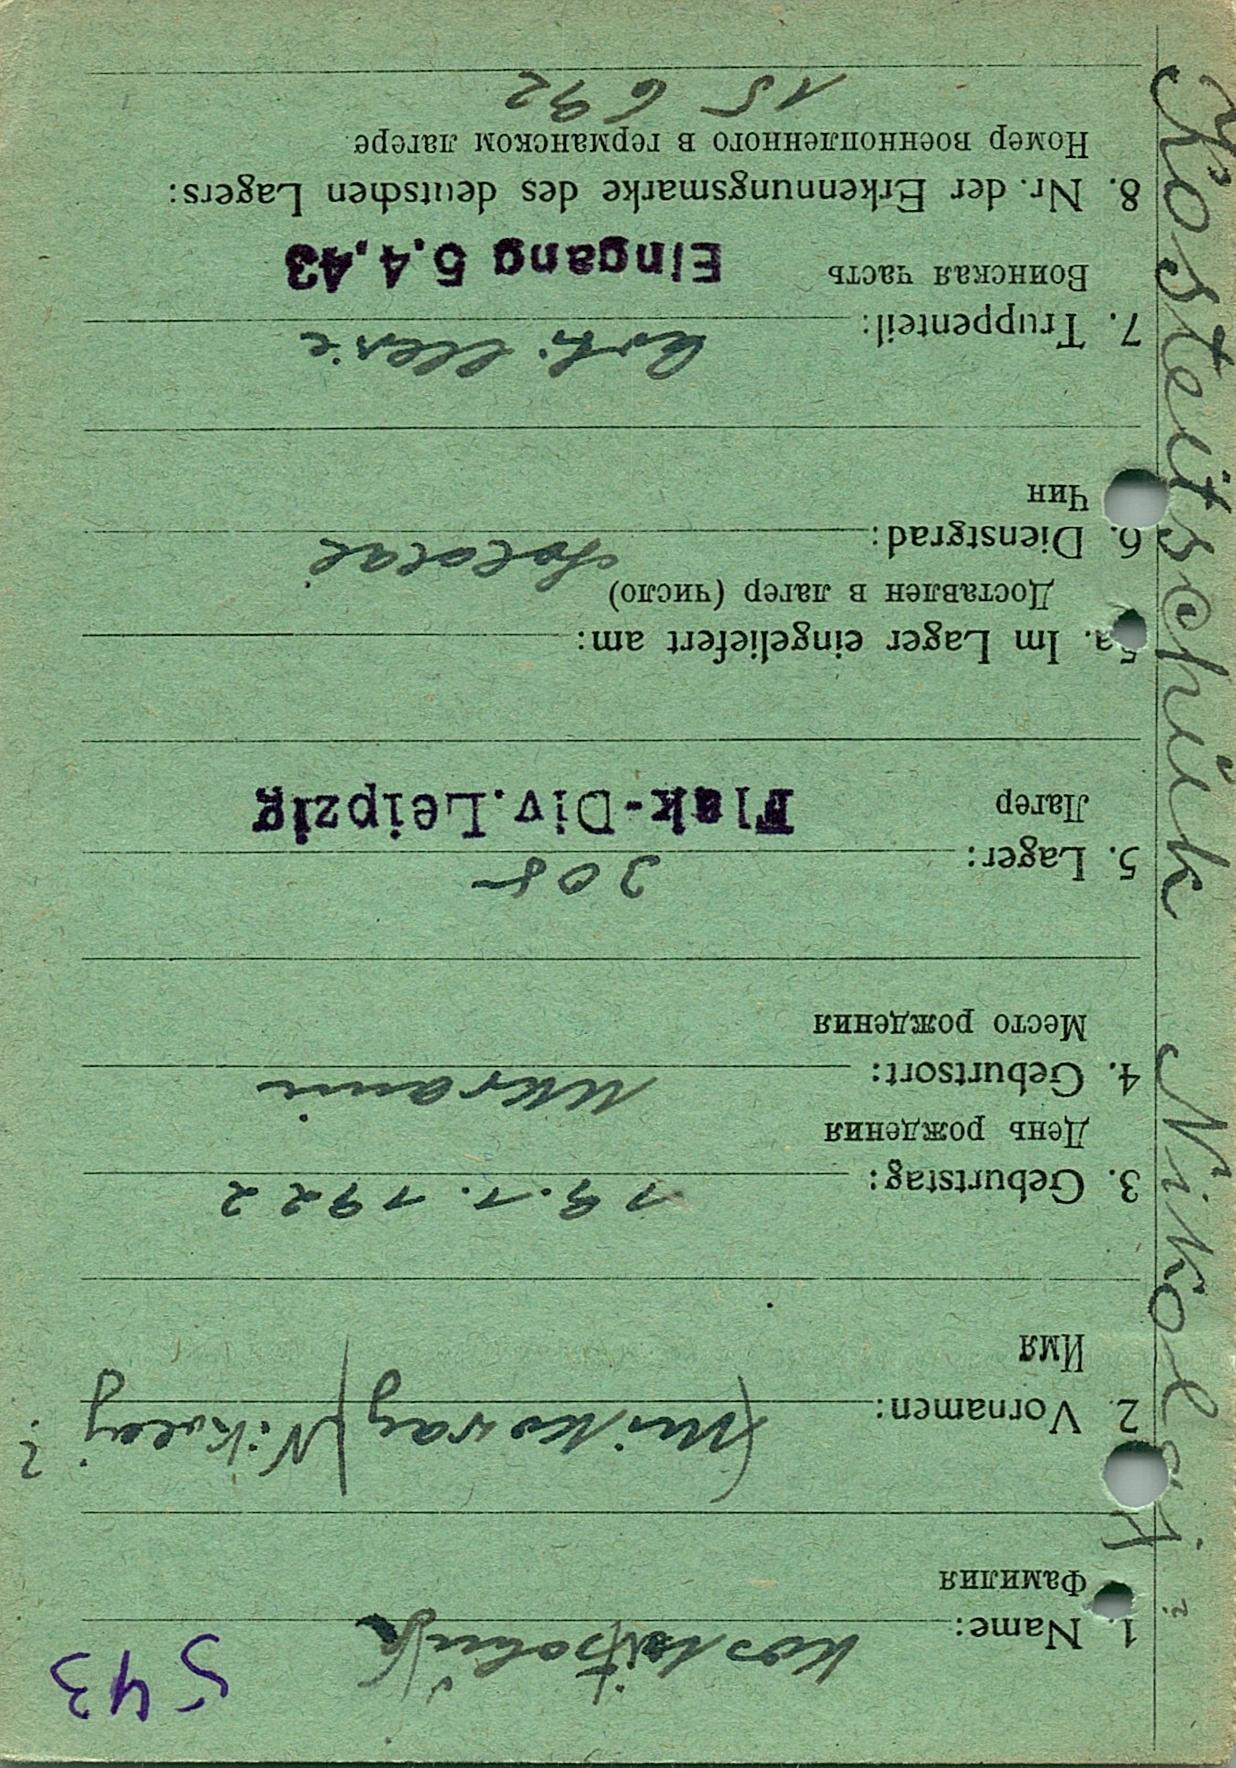 543
1. Name: Kosteitschuk
Фамилия
2. Vornamen: (Mikovay) Nikolay ?
Имя
3. Geburtstag: 19.1.1922
День рождения
4. Geburtsort: Ukraine
Место рождения
5. Lager: 305
Лагер Flak-Div.Leipzig
5a. Im Lager eingeliefert am:
Доставлен в лагер (число)
6. Dienstgrad: Soldat
Чин
7. Truppenteil: Artillerie
Воинская часть Eingang 5.4.43
8. Nr. der Erkennungsmarke des deutschen Lagers:
Номер военнопленного в германском лагере
15 692
Kosteitschuk Nikolaj ?